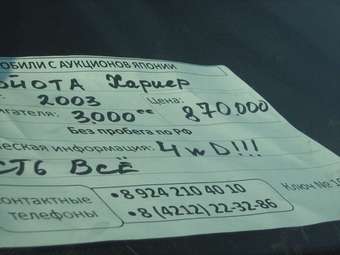 ОБИЛИ С АУКЦИОНОВ ЯПОНИИ
ОЙОТА Хариер
: 2003 Цена: 870,000
игателя: 3,000 сс
Без пробега по РФ
ческая информация: 4WD!!!
СТЬ ВСЁ
онтактные телефоны
•8 924 210 40 10
•8 (4212) 22-32-86
Ключ №